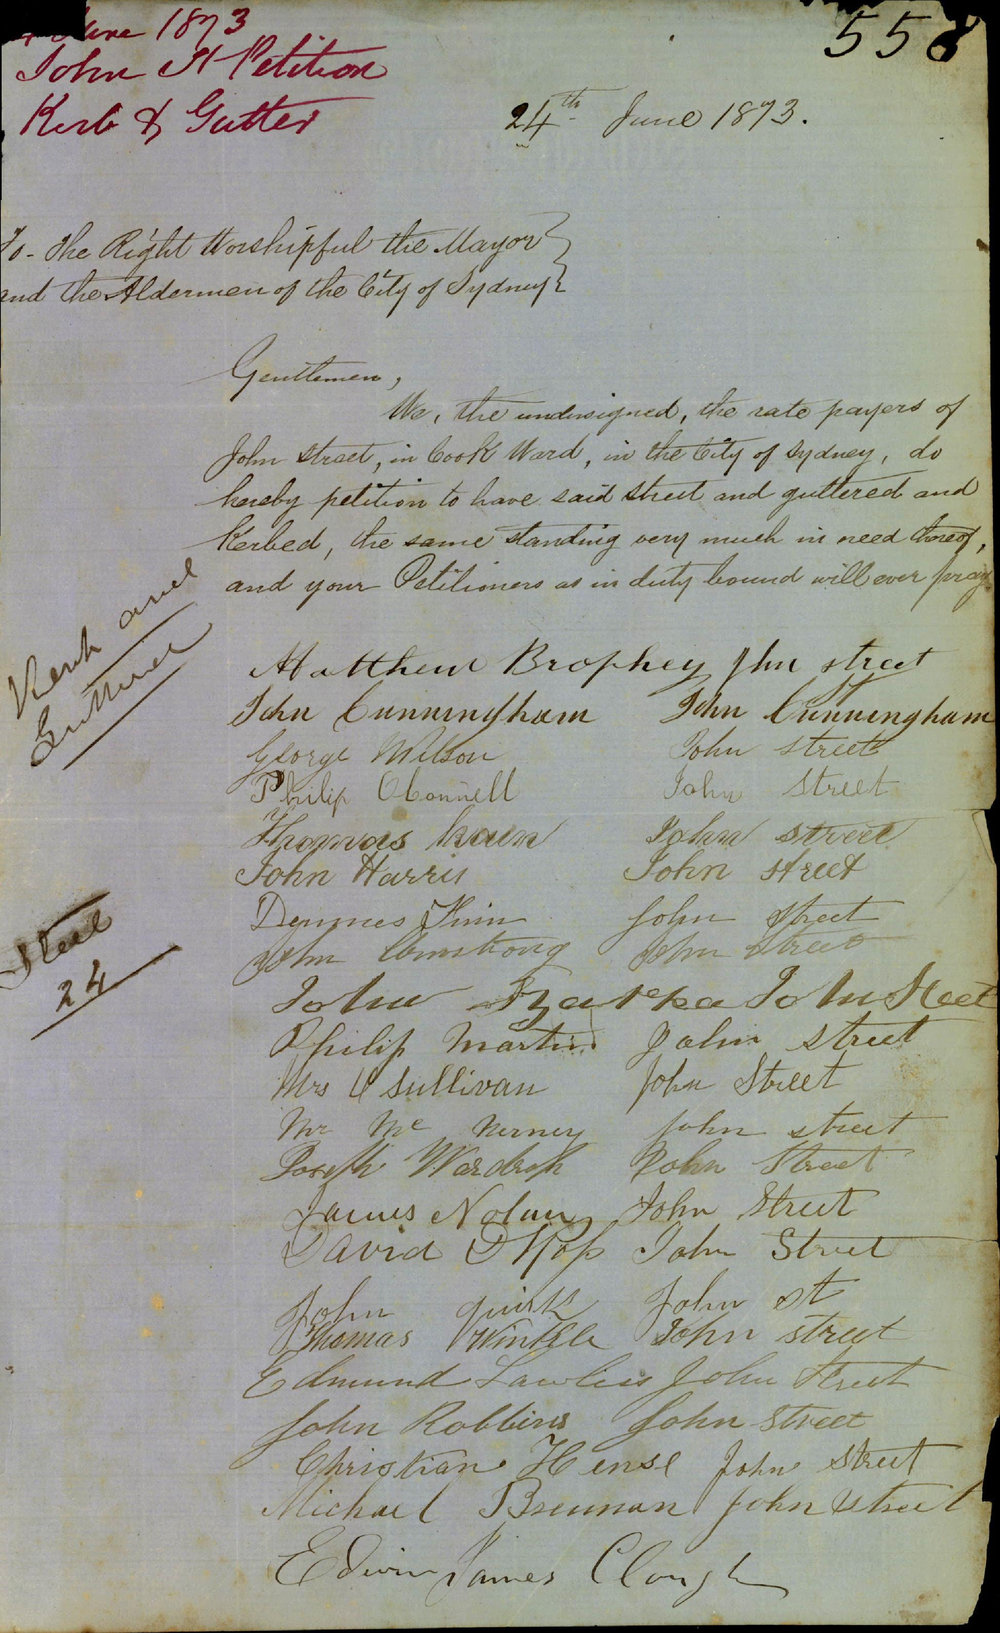 June 1873
John St Petition
Kerb & Gutter
558
24th June 1873.
To- The Right Worshipful the Mayor
and the Aldermen of the City of Sydney
Gentlemen,
We, the undersigned, the rate payers of
John street, in Cook Ward, in the City of Sydney, do
hereby petition to have said street and guttered and
Kerbed, the same standing very much in need thereof,
and your Petitioners as in duty bound will ever pray
Kerb and
Gutter
Matthew Brophey John street
John Cunningham John St Cunningham
George Wilson John Street
Philip OConnell John Street
Thomas John street
John Harris John street
Dennes Finn John Street
John Armstrong John Street
John John Street
Philip Martin John street
Mrs O Sullivan John Street
Mr Mc Nerney John street
Joseph Wardrop John Street
James Nolan John Street
David John Street
John quirk John st
Thomas Winkle John street
Edmund Lawless John Street
John Robbins John Street
Christian Hense John Street
Michael Brennan John Street
Edwin James Clough
Steel
24